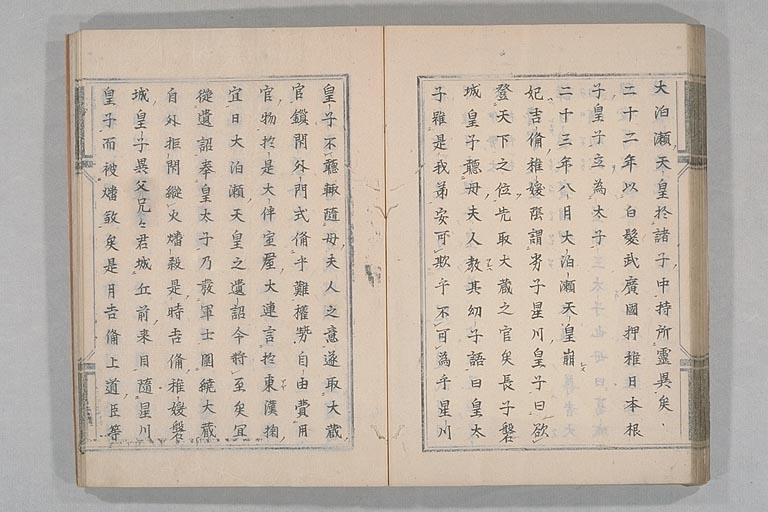 大泊瀬天皇於諸子中特所霊異矣、
二十二年以白髪武廣國押稚日本根
子皇子立為太子
二十三年八月大泊瀬天皇崩
妃吉備稚媛陰謂㓜子星川皇子曰欲
登天下之位先取大蔵之官矣長子磐
城皇子聽母夫人教其幼子語曰皇太
子雖是我弟安可欺乎不可為乎星川
皇子不聽輙隨母夫人之意遂取大蔵
官鏁閇外門式備乎難權勢自由費用
官物於是大伴室屋大連言於東漢掬
宜曰大泊瀬天皇之遺詔今將至矣宜
從遺詔奉皇太子乃發軍士圍繞大蔵
自外拒閇縦火燔殺是時吉備稚媛磐
城皇子異父兄々君城丘前来目隨星川
皇子而被燔敘矣是月吉備上道臣等